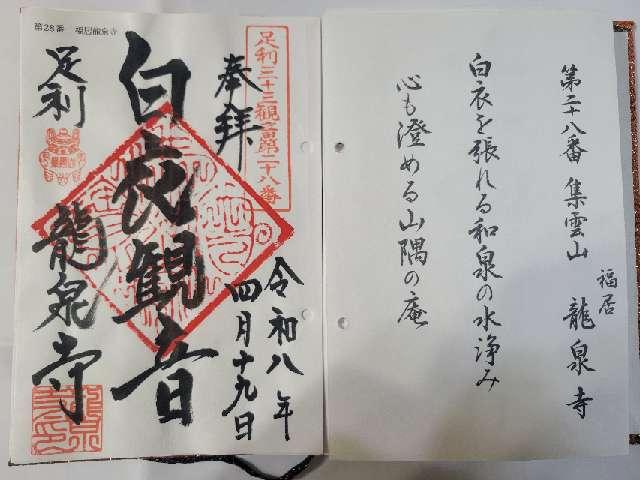 第二十八番 集雲山 龍泉寺
福居
白衣を張れる和泉の水浄み
心も澄める山隅の庵
第28番 福居龍泉寺
足利三十三観音第二十八番
奉拝
令和八年
四月十九日
白衣観音
足利
龍泉寺